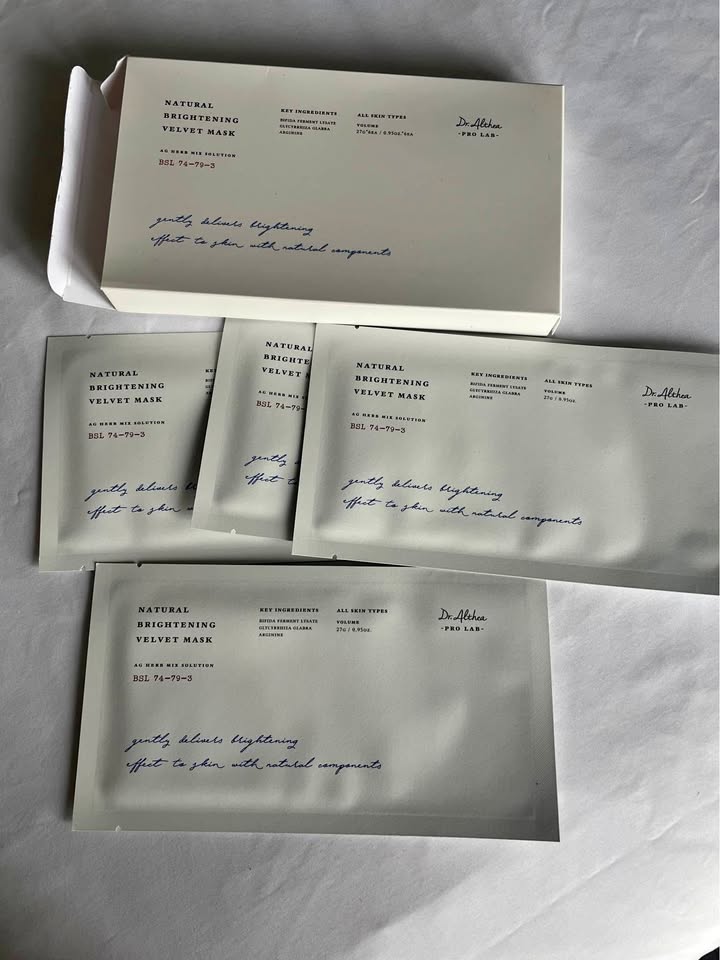 NATURAL
BRIGHTENING
VELVET MASK
AG HERB MIX SOLUTION
BSL 74-79-3
KEY INGREDIENTS
BIFIDA FERMENT LYSATE
GLYCYRRHIZA GLABRA
ARGININE
ALL SKIN TYPES
VOLUME
Dr.Althea
-PRO LAB-
gently delivers brightening
effect to skin with natural components
NATURAL
BRIGHTENING
VELVET MASK
AG HERB MIX SOLUTION
BSL 74-79-3
gently delivers b
effect to skin w
NATURAL
BRIGHTE
VELVET M
AG HERB MIX S
BSL 74-79-
gently d
effect t
NATURAL
BRIGHTENING
VELVET MASK
AG HERB MIX SOLUTION
BSL 74-79-3
KEY INGREDIENTS
BIFIDA FERMENT LYSATE
GLYCYRRHIZA GLABRA
ARGININE
ALL SKIN TYPES
VOLUME
27G / 0.95oz.
Dr.Althea
-PRO LAB-
gently delivers brightening
effect to skin with natural components
NATURAL
BRIGHTENING
VELVET MASK
AG HERB MIX SOLUTION
BSL 74-79-3
KEY INGREDIENTS
BIFIDA FERMENT LYSATE
GLYCYRRHIZA GLABRA
ARGININE
ALL SKIN TYPES
VOLUME
27G / 0.95oz.
Dr.Althea
-PRO LAB-
gently delivers brightening
effect to skin with natural components